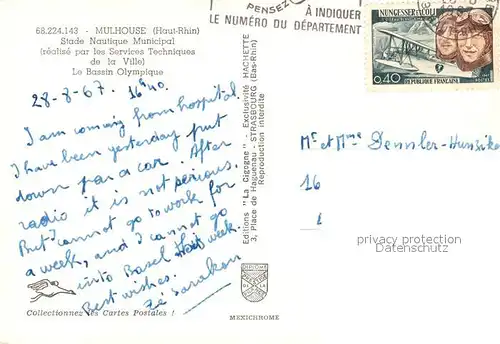 68.224.143 - MULHOUSE (Haut-Rhin)
Stade Nautique Municipal
(réalisé par les Services Techniques
de la Ville)
Le Bassin Olympique
28-8-67. 16h40.
I am coming from hospital.
I have been yesterday put
down par a car. After
radio it is not serious.
But I cannot go to work for
a week, and I cannot go
into Basel this week.
Best wishes.
Collectionnez les Cartes Postales !
Editions "La Cigogne" - Exclusivité HACHETTE
3, Place de Haguenau - STRASBOURG (Bas-Rhin)
Reproduction interdite
DIPLOME
MEXICHROME
PENSEZ
À INDIQUER
LE NUMÉRO DU DÉPARTEMENT
NUNGESSER et COLI
0,40
RÉPUBLIQUE FRANÇAISE
Mr et Mme Dennler-Hunziker
16
privacy protection